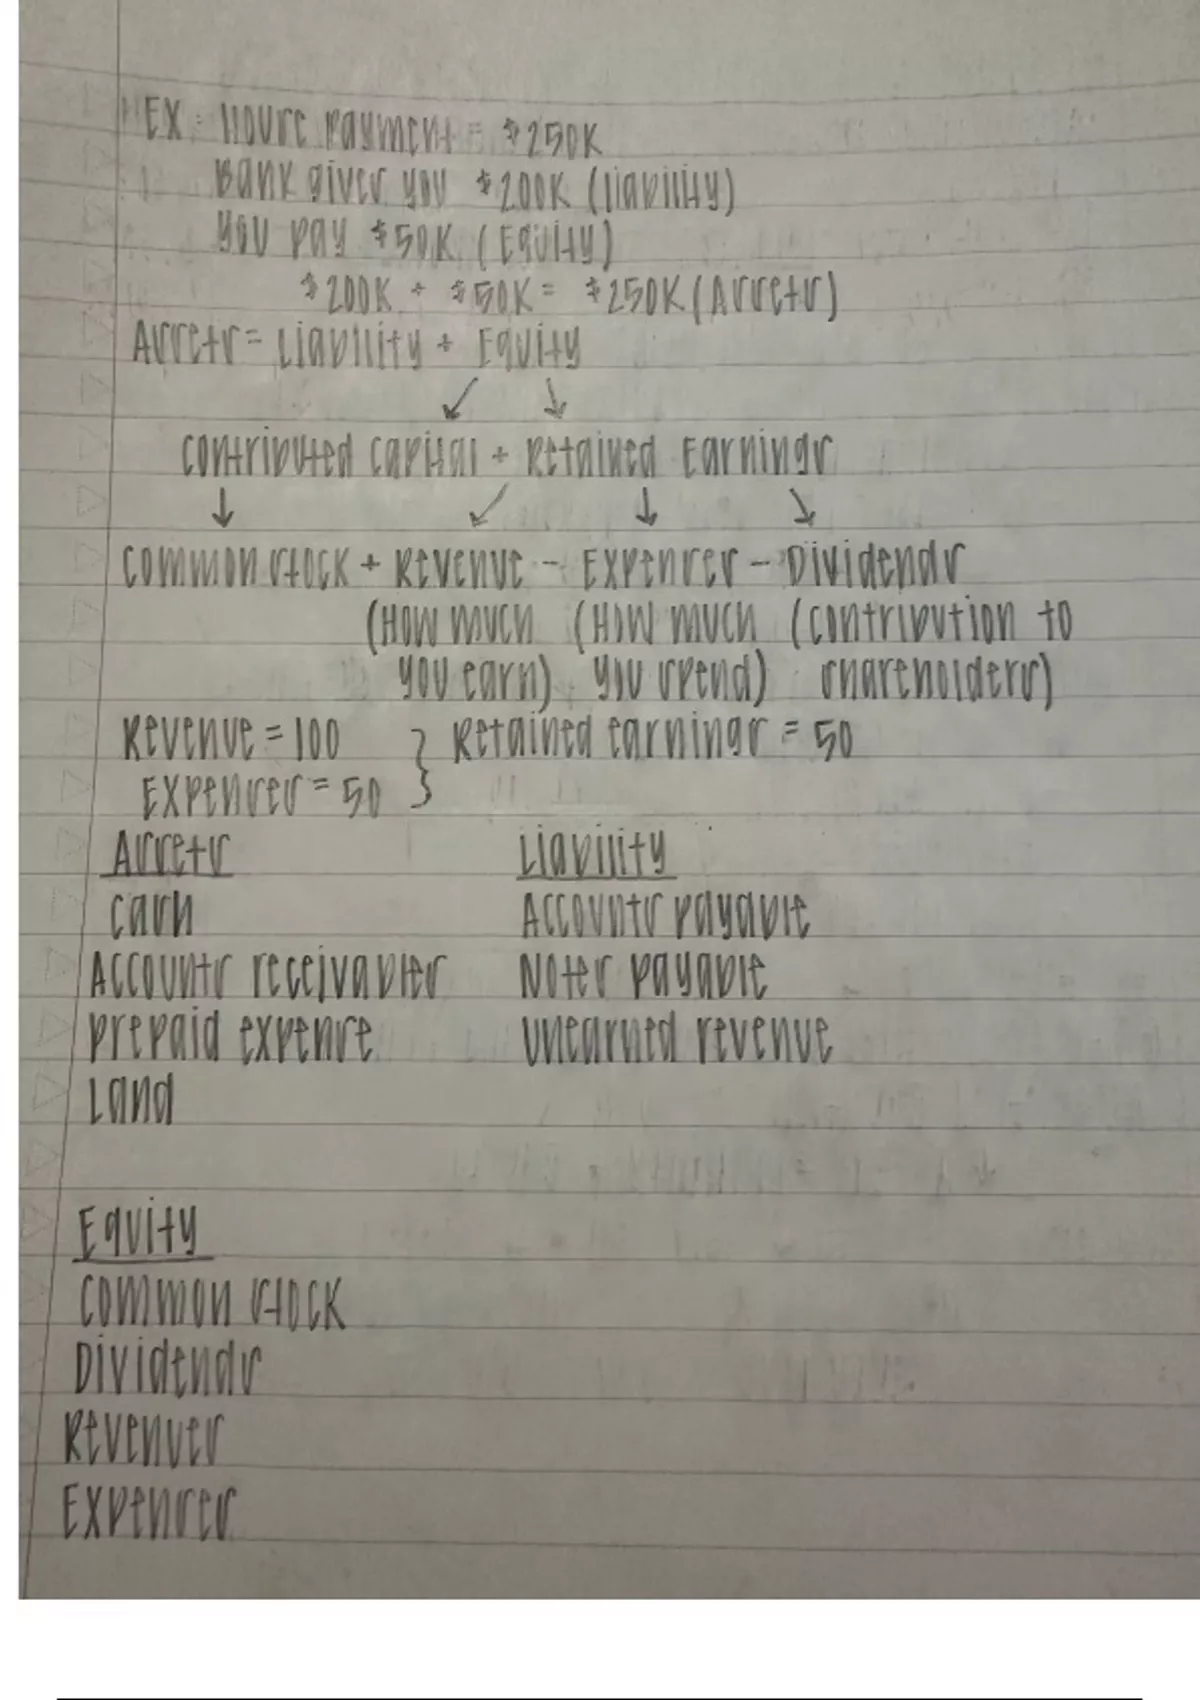 EX: House Payment = $250K
Bank gives you $200K (liability)
you pay $50K (Equity)
$200K + $50K = $250K (Assets)
Assets = Liability + Equity
↙ ↓
Contributed Capital + Retained Earnings
↓ ↙ ↓ ↘
Common stock + Revenue - Expenses - Dividends
(How much (How much (contribution to
you earn) you spend) shareholders)
Revenue = 100 } Retained earnings = 50
Expenses = 50
Assets Liability
cash Accounts payable
Accounts receivables Notes payable
prepaid expense unearned revenue
Land
Equity
common stock
Dividends
Revenues
Expenses